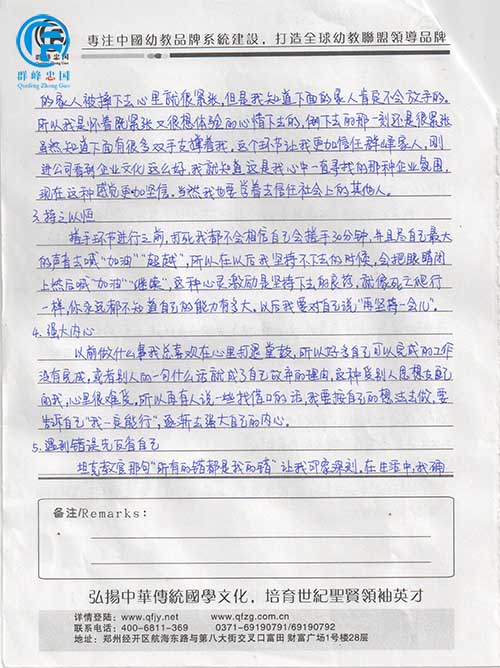 群峰忠国
Qunfeng Zhong Guo
專注中國幼教品牌系統建設，打造全球幼教聯盟領導品牌
的家人被摔下去心里就很紧张，但是我知道下面的家人肯定不会放手的。
所以我是怀着既紧张又很想体验的心情下去的，倒下去的那一刻还是很紧张
虽然知道下面有很多双手支撑着我，这个环节让我更加信任群峰家人，刚
进公司看到企业文化这么好，我就知道这是我心中一直寻找的那种企业氛围，
现在这种感觉更加坚信。当然我也要试着去信任社会上的其他人。
3.持之以恒
搓手环节进行之前，打死我都不会相信自己会搓手30分钟，并且尽自己最大
的声音去喊"加油""超越"，所以在以后我坚持不下去的时候，会把眼睛闭
上然后喊"加油""继续"，这种心灵激励是坚持下去的良药，就像死亡爬行
一样，你永远都不知道自己的能力有多大，以后我要对自己说"再坚持一会儿"。
4.强大内心
以前做什么事我总喜欢在心里打退堂鼓，所以好多自己可以完成的工作
没有完成，或者别人的一句什么话就成了自己放弃的理由，这种受别人思想支配
的我，心里很难受，所以再有人说一些找借口的话，我要按自己的想法去做，要
告诉自己"我一定能行"，逐渐去强大自己的内心。
5.遇到错误先石看自己
坦克教官那句"所有的错都是我的错"让我印象深刻。在生活中，我确
备注/Remarks：
弘揚中華傳統國學文化，培育世紀聖賢領袖英才
详情登陆：www.qfjy.net www.qfzg.com.cn
联系电话：400-6811-369 0371-69190791/69190792
地址：郑州经开区航海东路与第八大街交叉口富田 财富广场1号楼28层